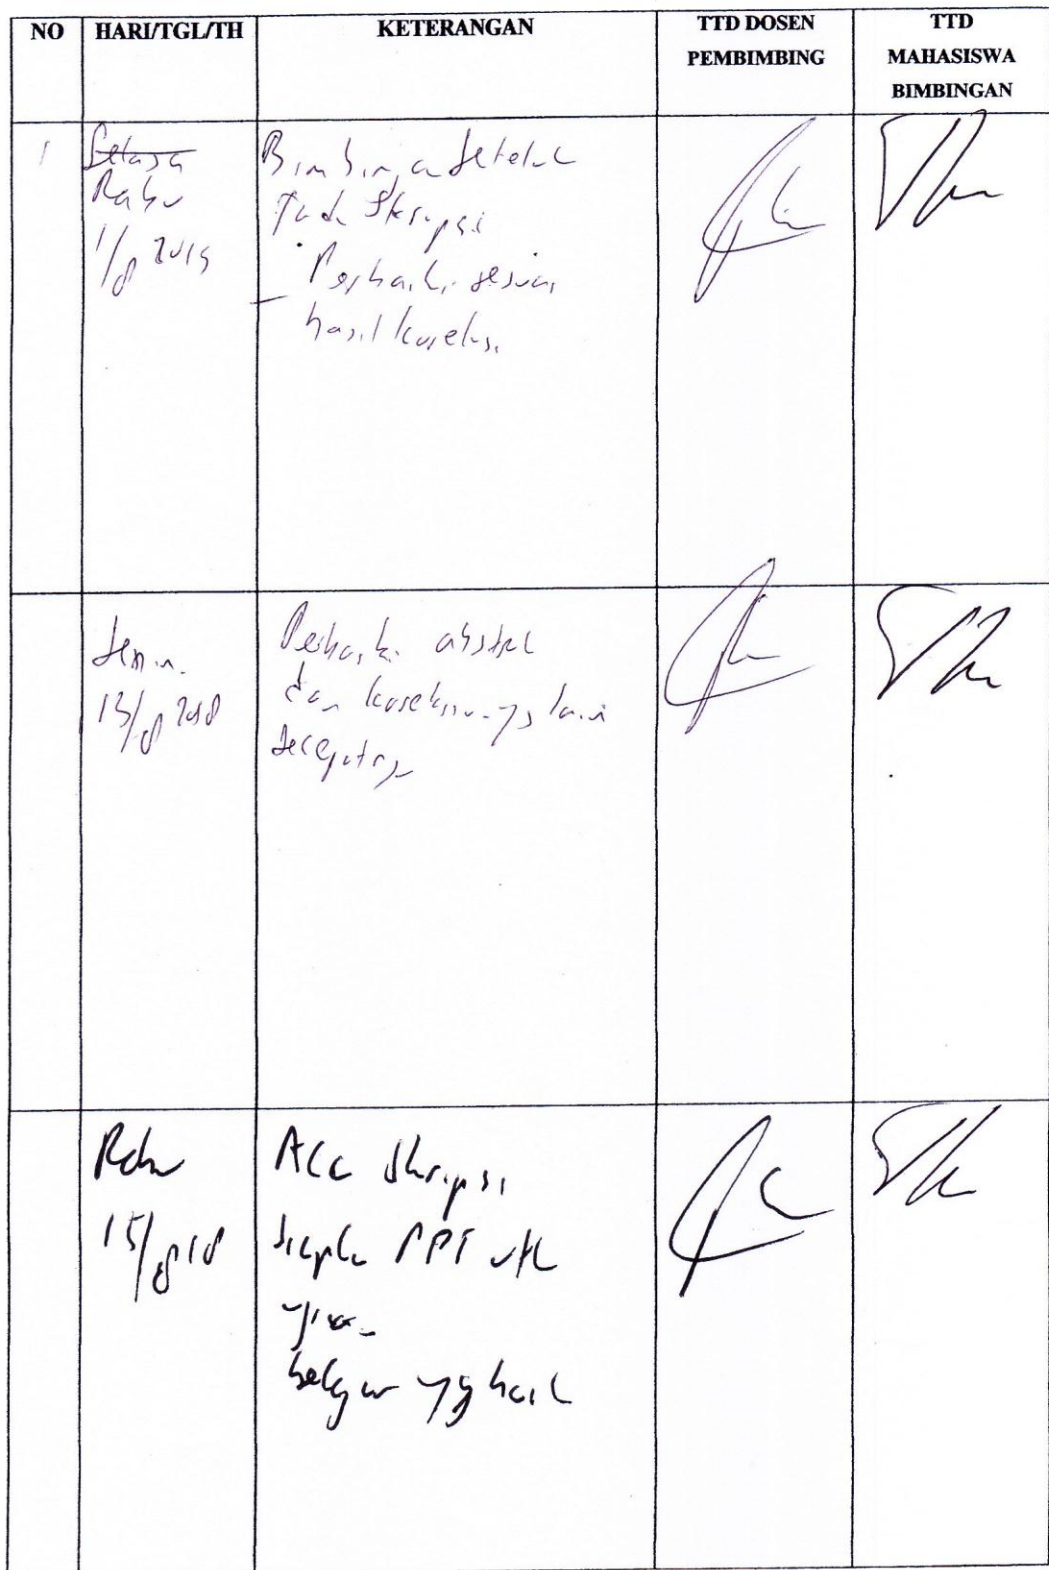 NO HARI/TGL/TH KETERANGAN TTD DOSEN PEMBIMBING TTD MAHASISWA BIMBINGAN
1 Selasa
Rabu
1/8
Bimbingan setelah
Skripsi
- Perbaiki sesuai
hasil koreksi
Senin
13/8 2018
Perbaiki abstrak
dan koreksian yg lain
secepatnya
Rabu
15/8 18
Acc Skripsi
siapkan PPT utk
ujian
belajar yg baik